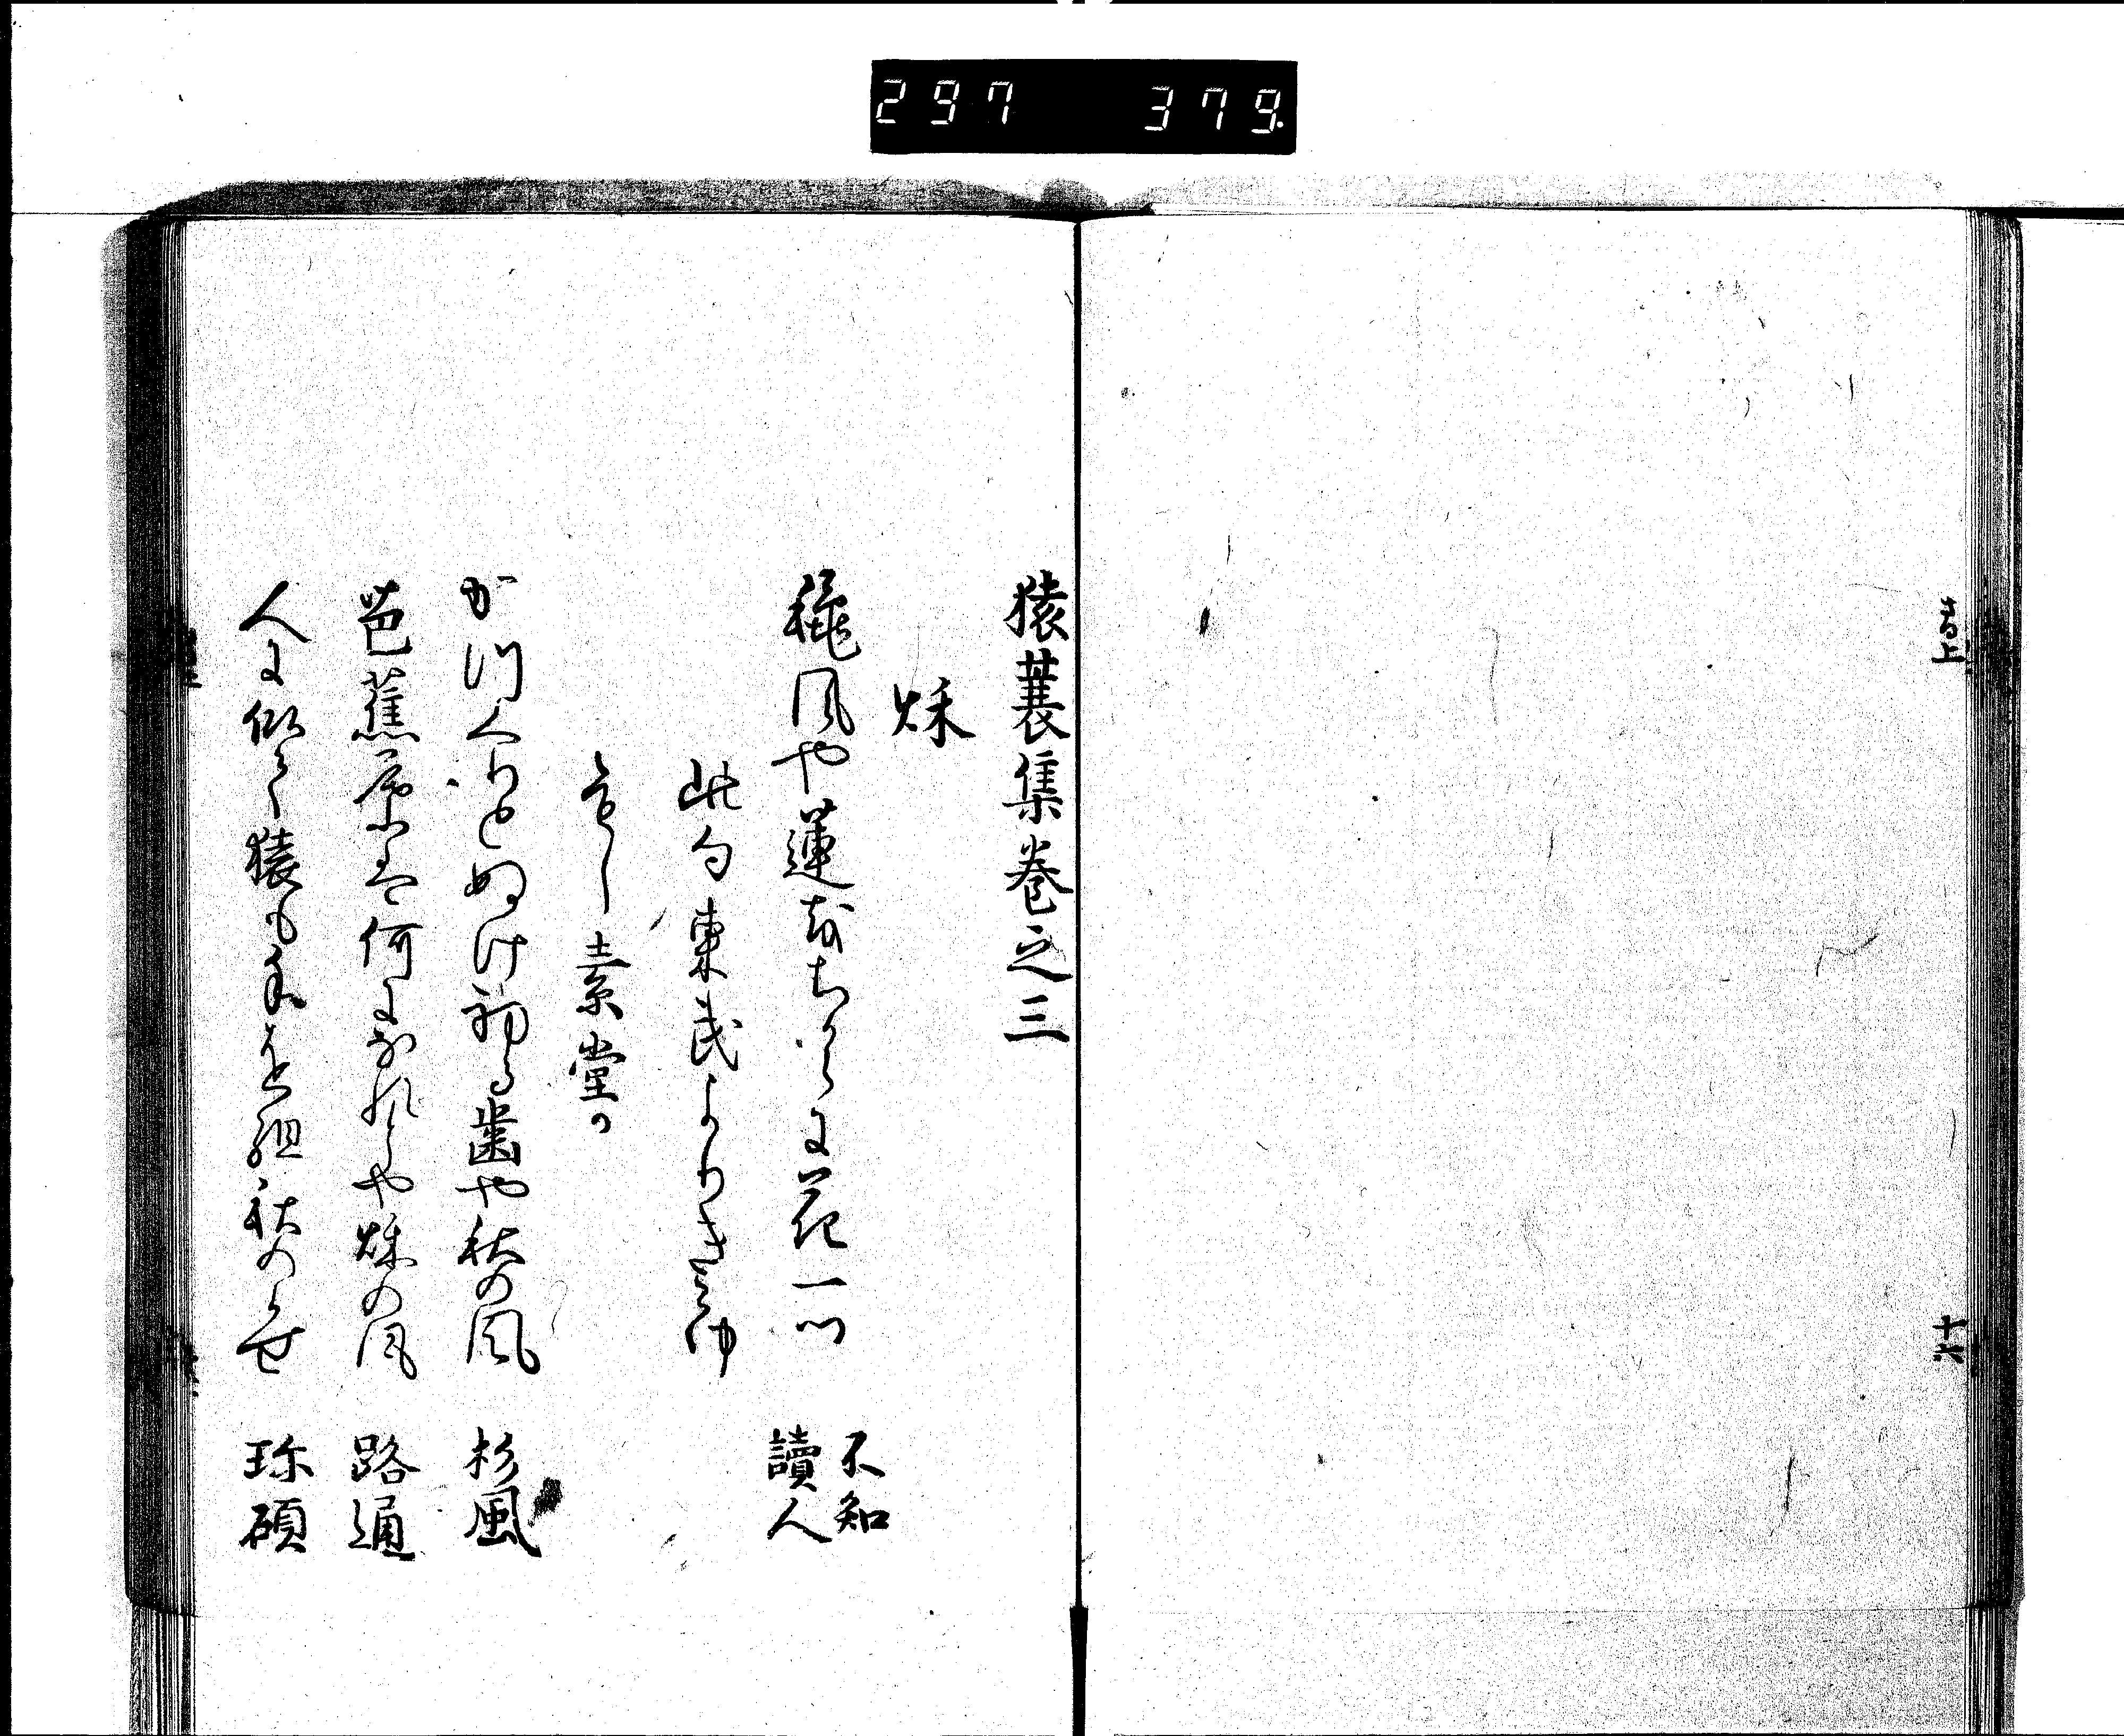 297 379.
さる上
十六
猿蓑集巻之三
秌
龝風や蓮をちからに花一つ
不知
讀人
此句東武よりきこゆ
もし素堂か
がつくりとぬけ初る歯や秋の風 杉風
芭蕉葉は何になれとや秌の風 路通
人に似て猿も手を組秋のかせ 珎碩